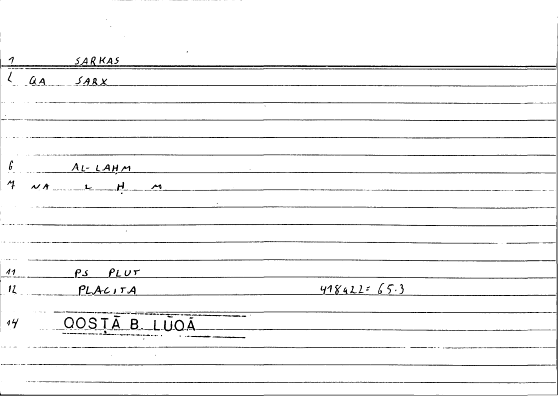 1 SARKAS
2 QA SARX
6 AL-LAḤM
7 NA L Ḥ M
11 PS PLUT
12 PLACITA 418a22= 65.3
14 QOSṬĀ B. LŪQĀ